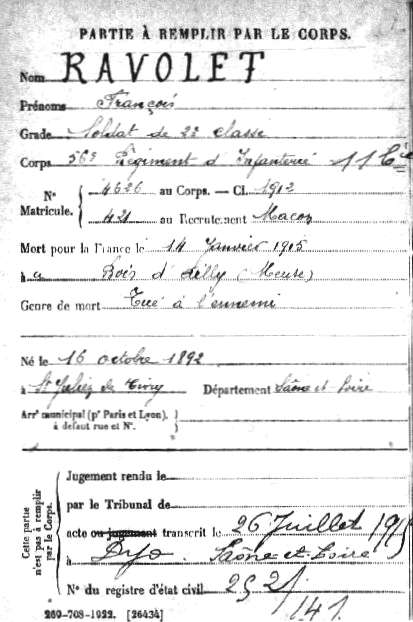 PARTIE À REMPLIR PAR LE CORPS.
Nom RAVOLET
Prénoms François
Grade Soldat de 2e classe
Corps 56e Régiment d'Infanterie 11 Cie
Nº Matricule. 4626 au Corps. — Cl. 1912
421 au Recrutement Macon
Mort pour la France le 14 Janvier 1915
à a Bois d'Ailly (Meuse)
Genre de mort Tué à l'ennemi
Né le 16 octobre 1892
à St Julien de Civry Département Saône et Loire
Arrt municipal (pr Paris et Lyon),
à défaut rue et Nº.
Cette partie n'est pas à remplir par le Corps.
Jugement rendu le
par le Tribunal de
acte ou jugement transcrit le 26 Juillet 1915
à Dyo Saône et Loire
Nº du registre d'état civil
269-708-1922. [26434] 141.